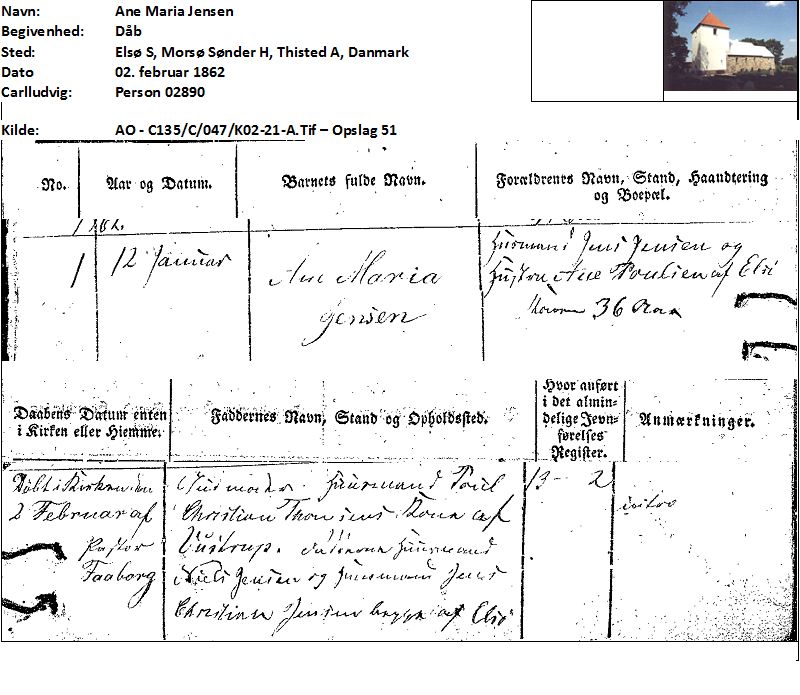 Navn: Ane Maria Jensen
Begivenhed: Dåb
Sted: Elsø S, Morsø Sønder H, Thisted A, Danmark
Dato 02. februar 1862
Carlludvig: Person 02890
Kilde: AO - C135/C/047/K02-21-A.Tif – Opslag 51
No.
Aar og Datum.
Barnets fulde Navn.
Forældrenes Navn, Stand, Haandtering
og Boepæl.
1
12 Januar
Ane Maria
Jensen
Huusmand Jens Jensen og
Hustru Ane Poulsen af Elsø
Konen 36 Aar
Daabens Datum enten
i Kirken eller Hiemme.
Faddernes Navn, Stand og Opholdssted.
Hvor anført
i det almin-
delige Jevn-
førelses
Register.
Anmærkninger.
Døbt i Kirken den
2 Februar af
Pastor
Faaborg
Gudmoder Huusmand Poul
Christian Thomsens Kone af
Huusmand
Niels Jensen og Huusmand Jens
Christian Jensen begge af Elsø
13 - 2